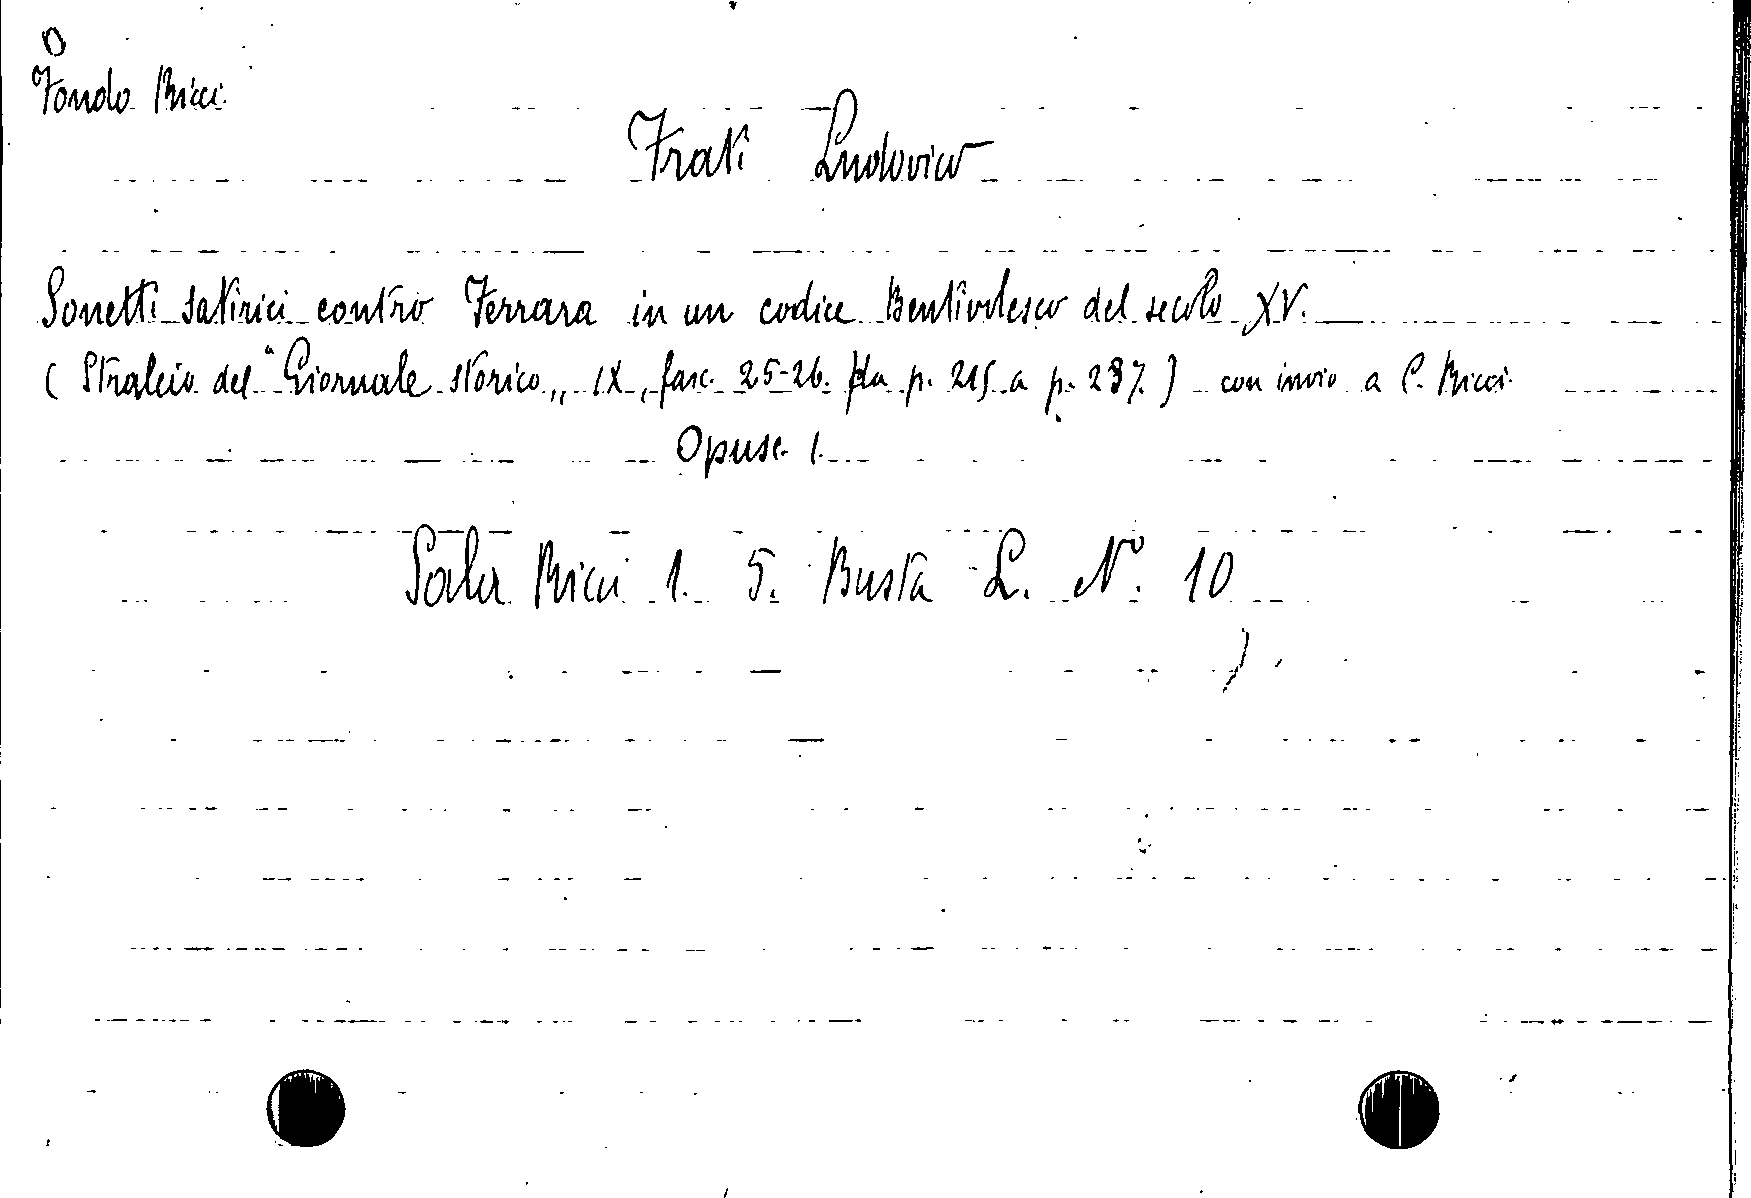 O
Fondo Ricci
Frati Ludovico
Sonetti satirici contro Ferrara in un codice Bentivolesco del secolo XV.
( Stralcio del "Giornale storico„ IX, fasc. 25-26. da p. 215 a p. 237. ) con invio a C. Ricci
Opusc. 1.
Sala Ricci 1. 5. Busta L. N° 10